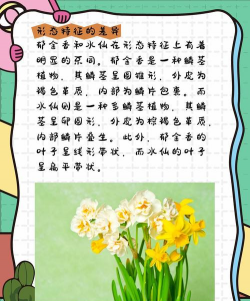 形态特征的差异
郁金香和水仙在形态特征上有着
明显的不同。郁金香是一种鳞茎
植物，其鳞茎呈圆锥形，外皮为
褐色革质，内部为鳞片包裹。而
水仙则是一种多鳞茎植物，其鳞
茎呈卵圆形，外皮为棕褐色革质，
内部鳞片叠生。此外，郁金香的
叶子呈线形带状，而水仙的叶子
呈扁平带状。